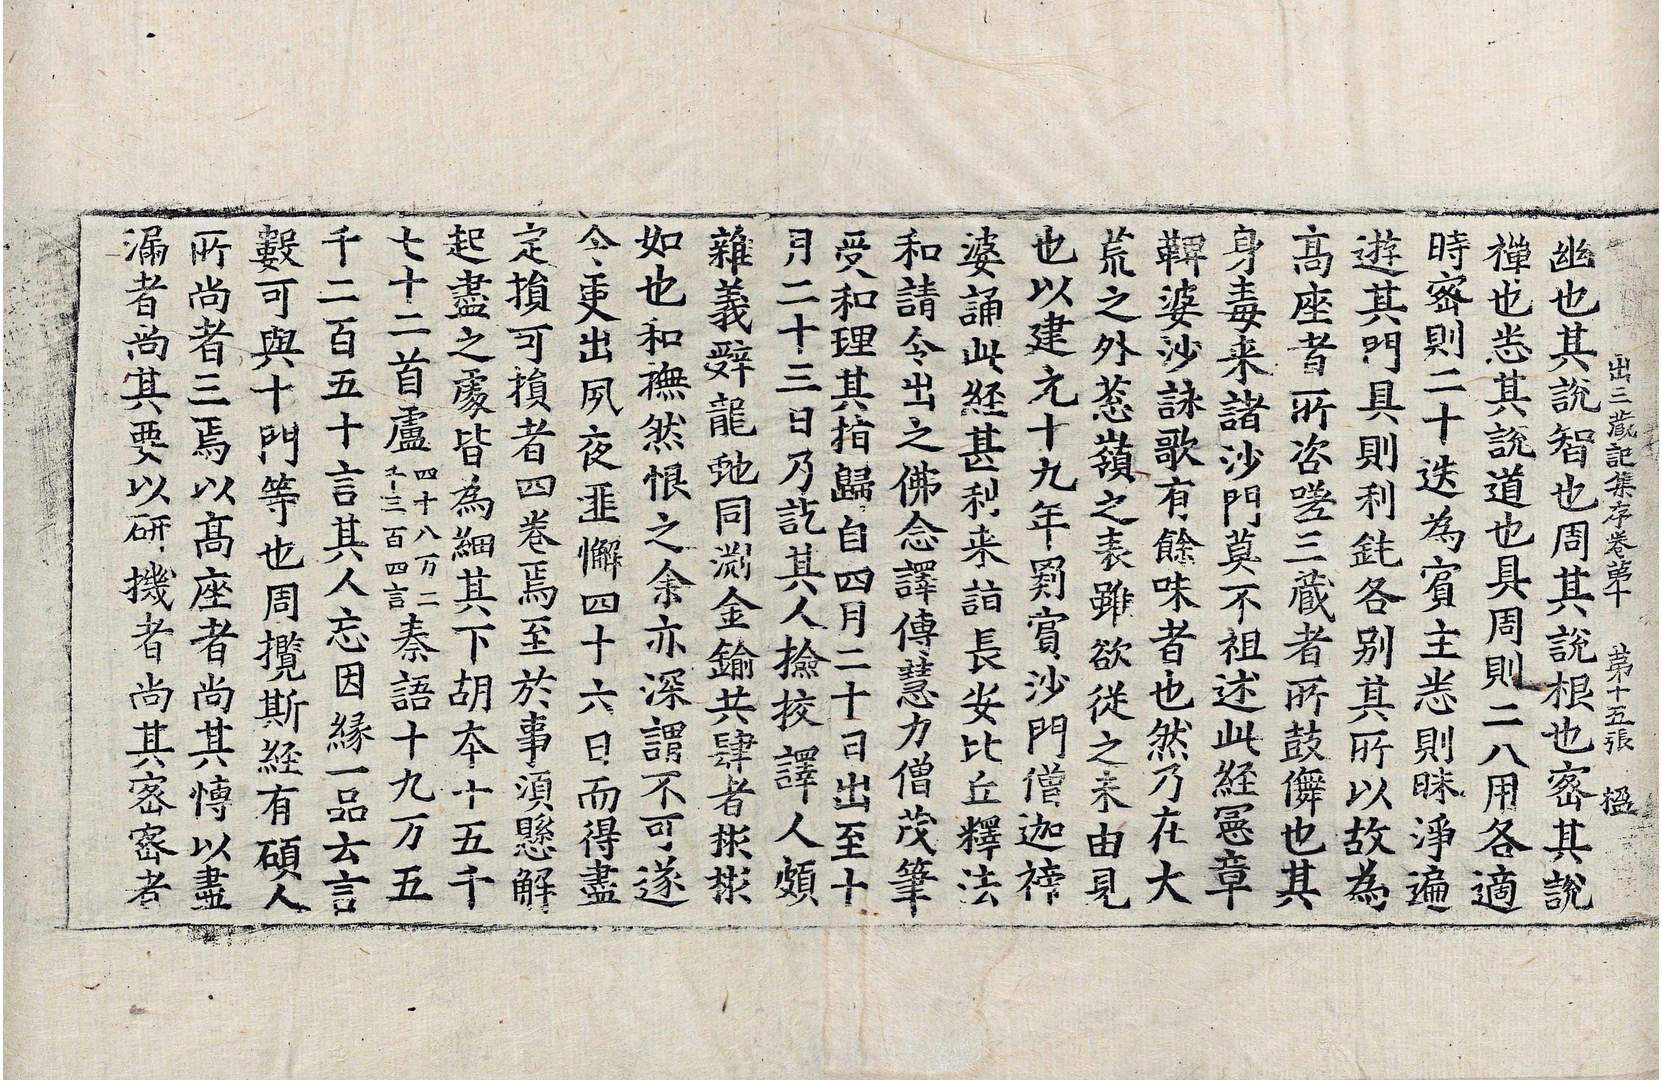 出三蔵記集存卷苐十　苐十五張　楹
幽也其說智也周其說根也宻其說
禪也悉其說道也具周則二八用各適
時宻則二十迭為賔主悉則昧淨遍
遊其門具則利鈍各别其所以故為
髙座者所咨嗟三蔵者所鼓儛也其
身毒来諸沙門莫不祖述此經憲章
鞞婆沙詠歌有餘味者也然乃在大
荒之外葱嶺之表雖欲從之末由見
也以建元十九年罽賔沙門僧迦禘
婆誦此經甚利来詣長安比丘釋法
和請令出之佛念譯傳慧力僧茂筆
受和理其指歸自四月二十日出至十
月二十三日乃訖其人撿挍譯人頗
雜義辭龍虵同渊金鍮共肆者彬彬
如也和撫然恨之余亦深謂不可遂
令更出夙夜匪懈四十六日而得盡
定損可損者四卷焉至於事須懸解
起盡之處皆為細其下胡夲十五千
七十二首盧四十八万二千三百四言秦語十九万五
千二百五十言其人忘因緣一品云言
數可與十門等也周攬斯經有碩人
所尚者三焉以髙座者尚其愽以盡
漏者尚其要以研機者尚其宻宻者